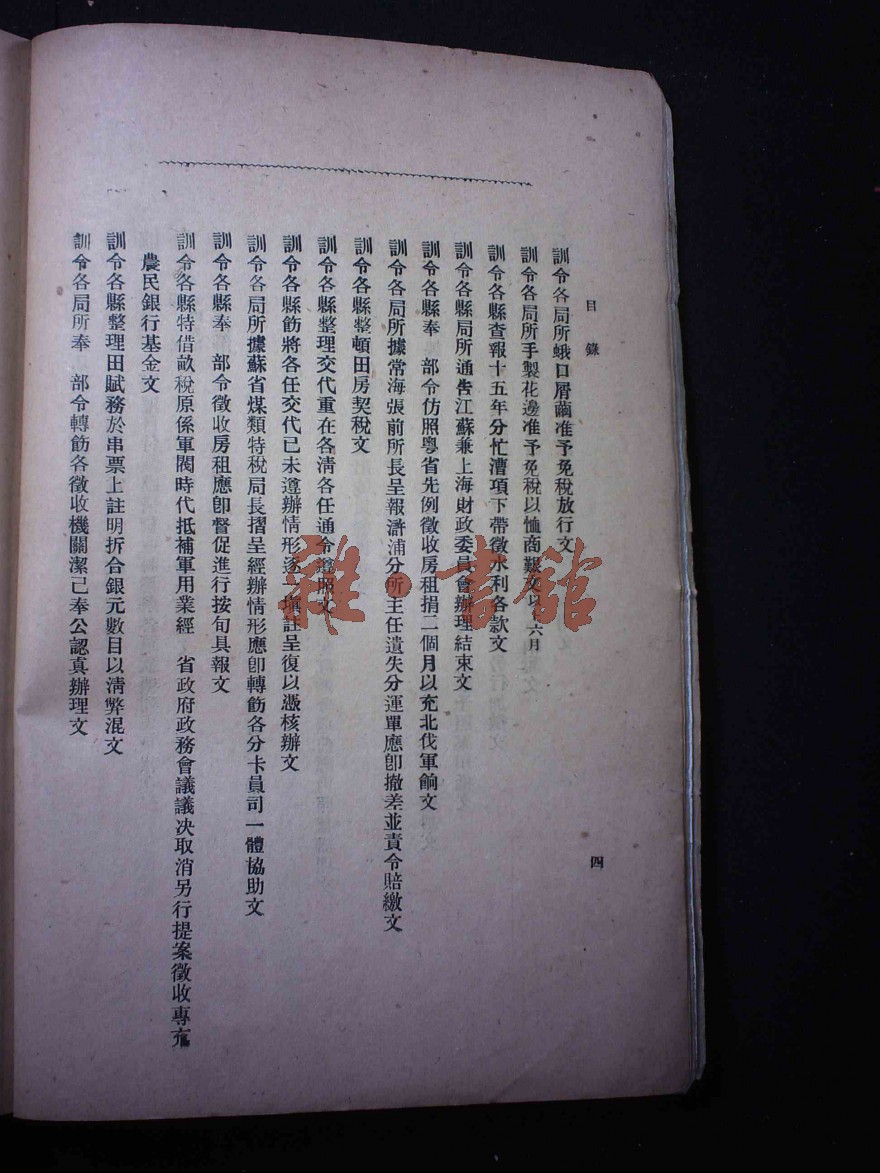 目錄
四
訓令各局所蛾口屑繭准予免稅放行文
訓令各局所手製花邊准予免稅以恤商艱文以下六月
訓令各縣查報十五年分忙漕項下帶徵水利各款文
訓令各縣局所通告江蘇兼上海財政委員會辦理結束文
訓令各縣奉 部令仿照粵省先例徵收房租捐二個月以充北伐軍餉文
訓令各局所據常海張前所長呈報滸浦分所主任遺失分運單應卽撤差並責令賠繳文
訓令各縣整頓田房契稅文
訓令各縣整理交代重在各清各任通令遵照文
訓令各縣飭將各任交代已未遵辦情形逐一塡註呈復以憑核辦文
訓令各局所據蘇省煤類特稅局長摺呈經辦情形應卽轉飭各分卡員司一體協助文
訓令各縣奉 部令徵收房租應卽督促進行按旬具報文
訓令各縣特借畝稅原係軍閥時代抵補軍用業經 省政府政務會議議決取消另行提案徵收專充
農民銀行基金文
訓令各縣整理田賦務於串票上註明拆合銀元數目以清弊混文
訓令各局所奉 部令轉飭各徵收機關潔己奉公認真辦理文
雜·書館